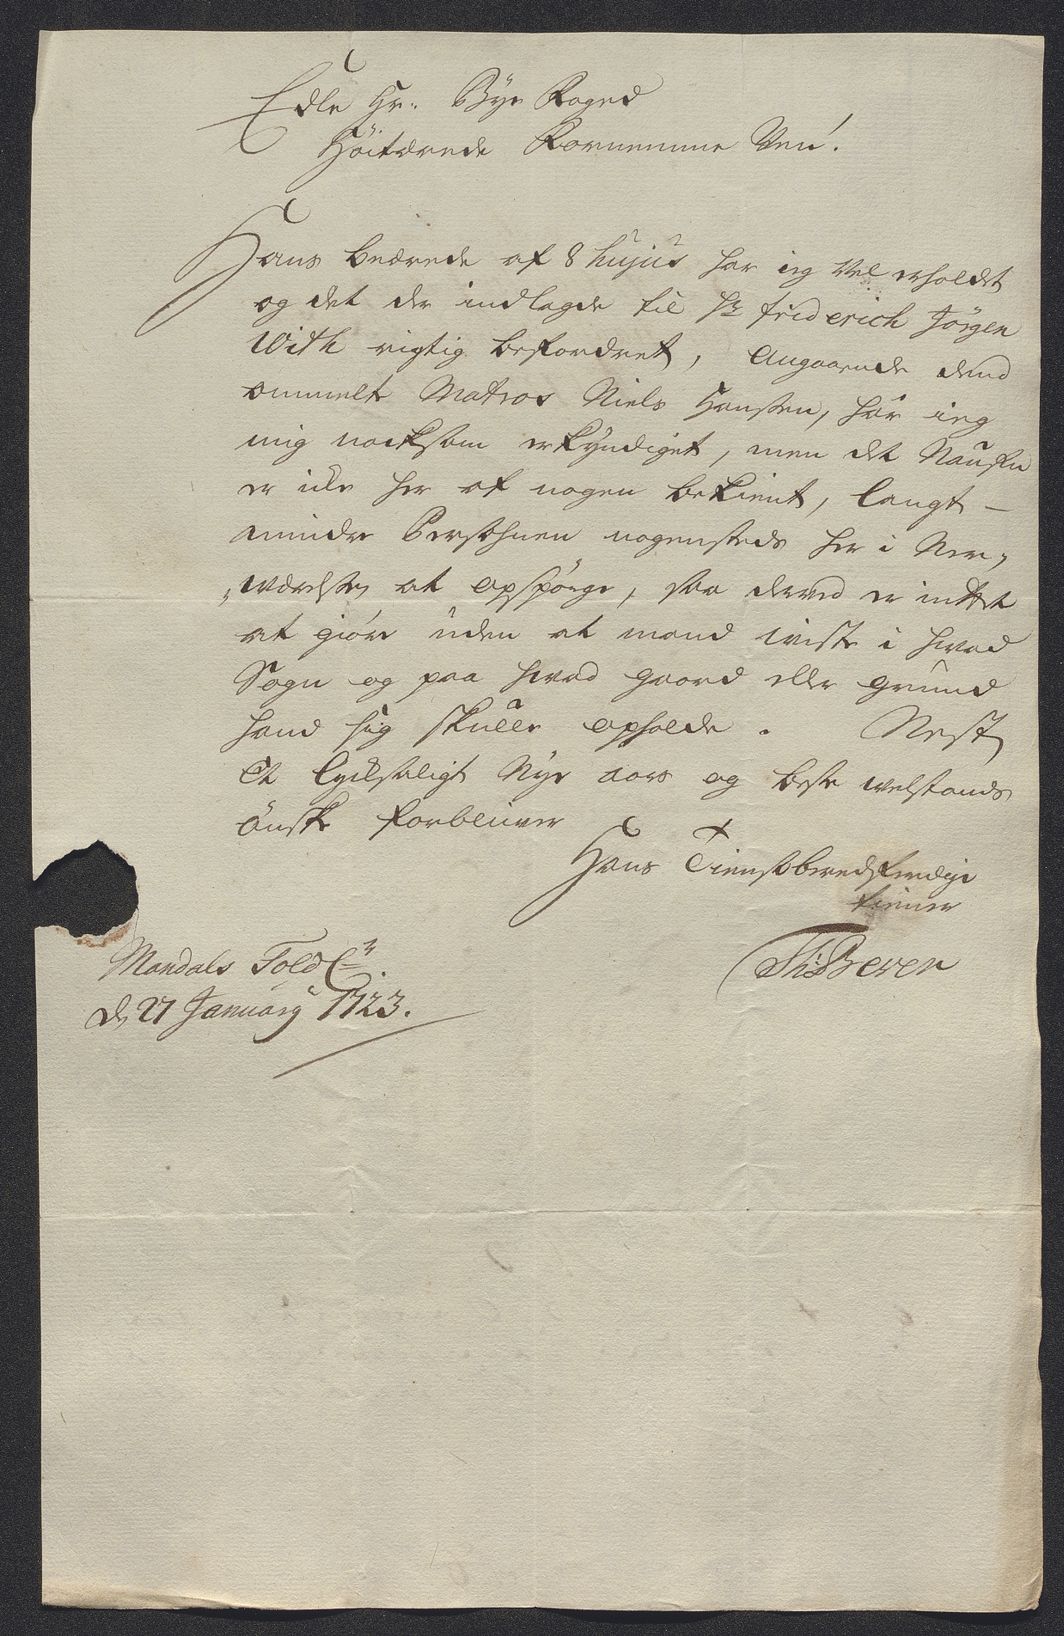 Edle Hr. Bye Foged
Höitærede Fornemme Ven!
Hans beærede af 8 hujus har ieg vel erholdet
og det der indlagde til Hr friderich Jörgen
With rigtig befordret, Angaaende dend
ommelte Matros Niels Hansen, har ieg
mig nocksom erkyndiget, men det Naufn
er icke her af nogen bekient, langt
mindre Persohnen nogensteds her i Ner,
,værelsen at opspörge, saa derved er intet
at giöre uden at mand viste i hvad
Sogn og paa hvad gaard eller grund
hand sig skulle opholde. Nest
Et lycksaligt Nye aars og beste velstands
önske forbliver
Hans Tienstberedferdige
tiener
Mandals Told
d. 27 January 1723.